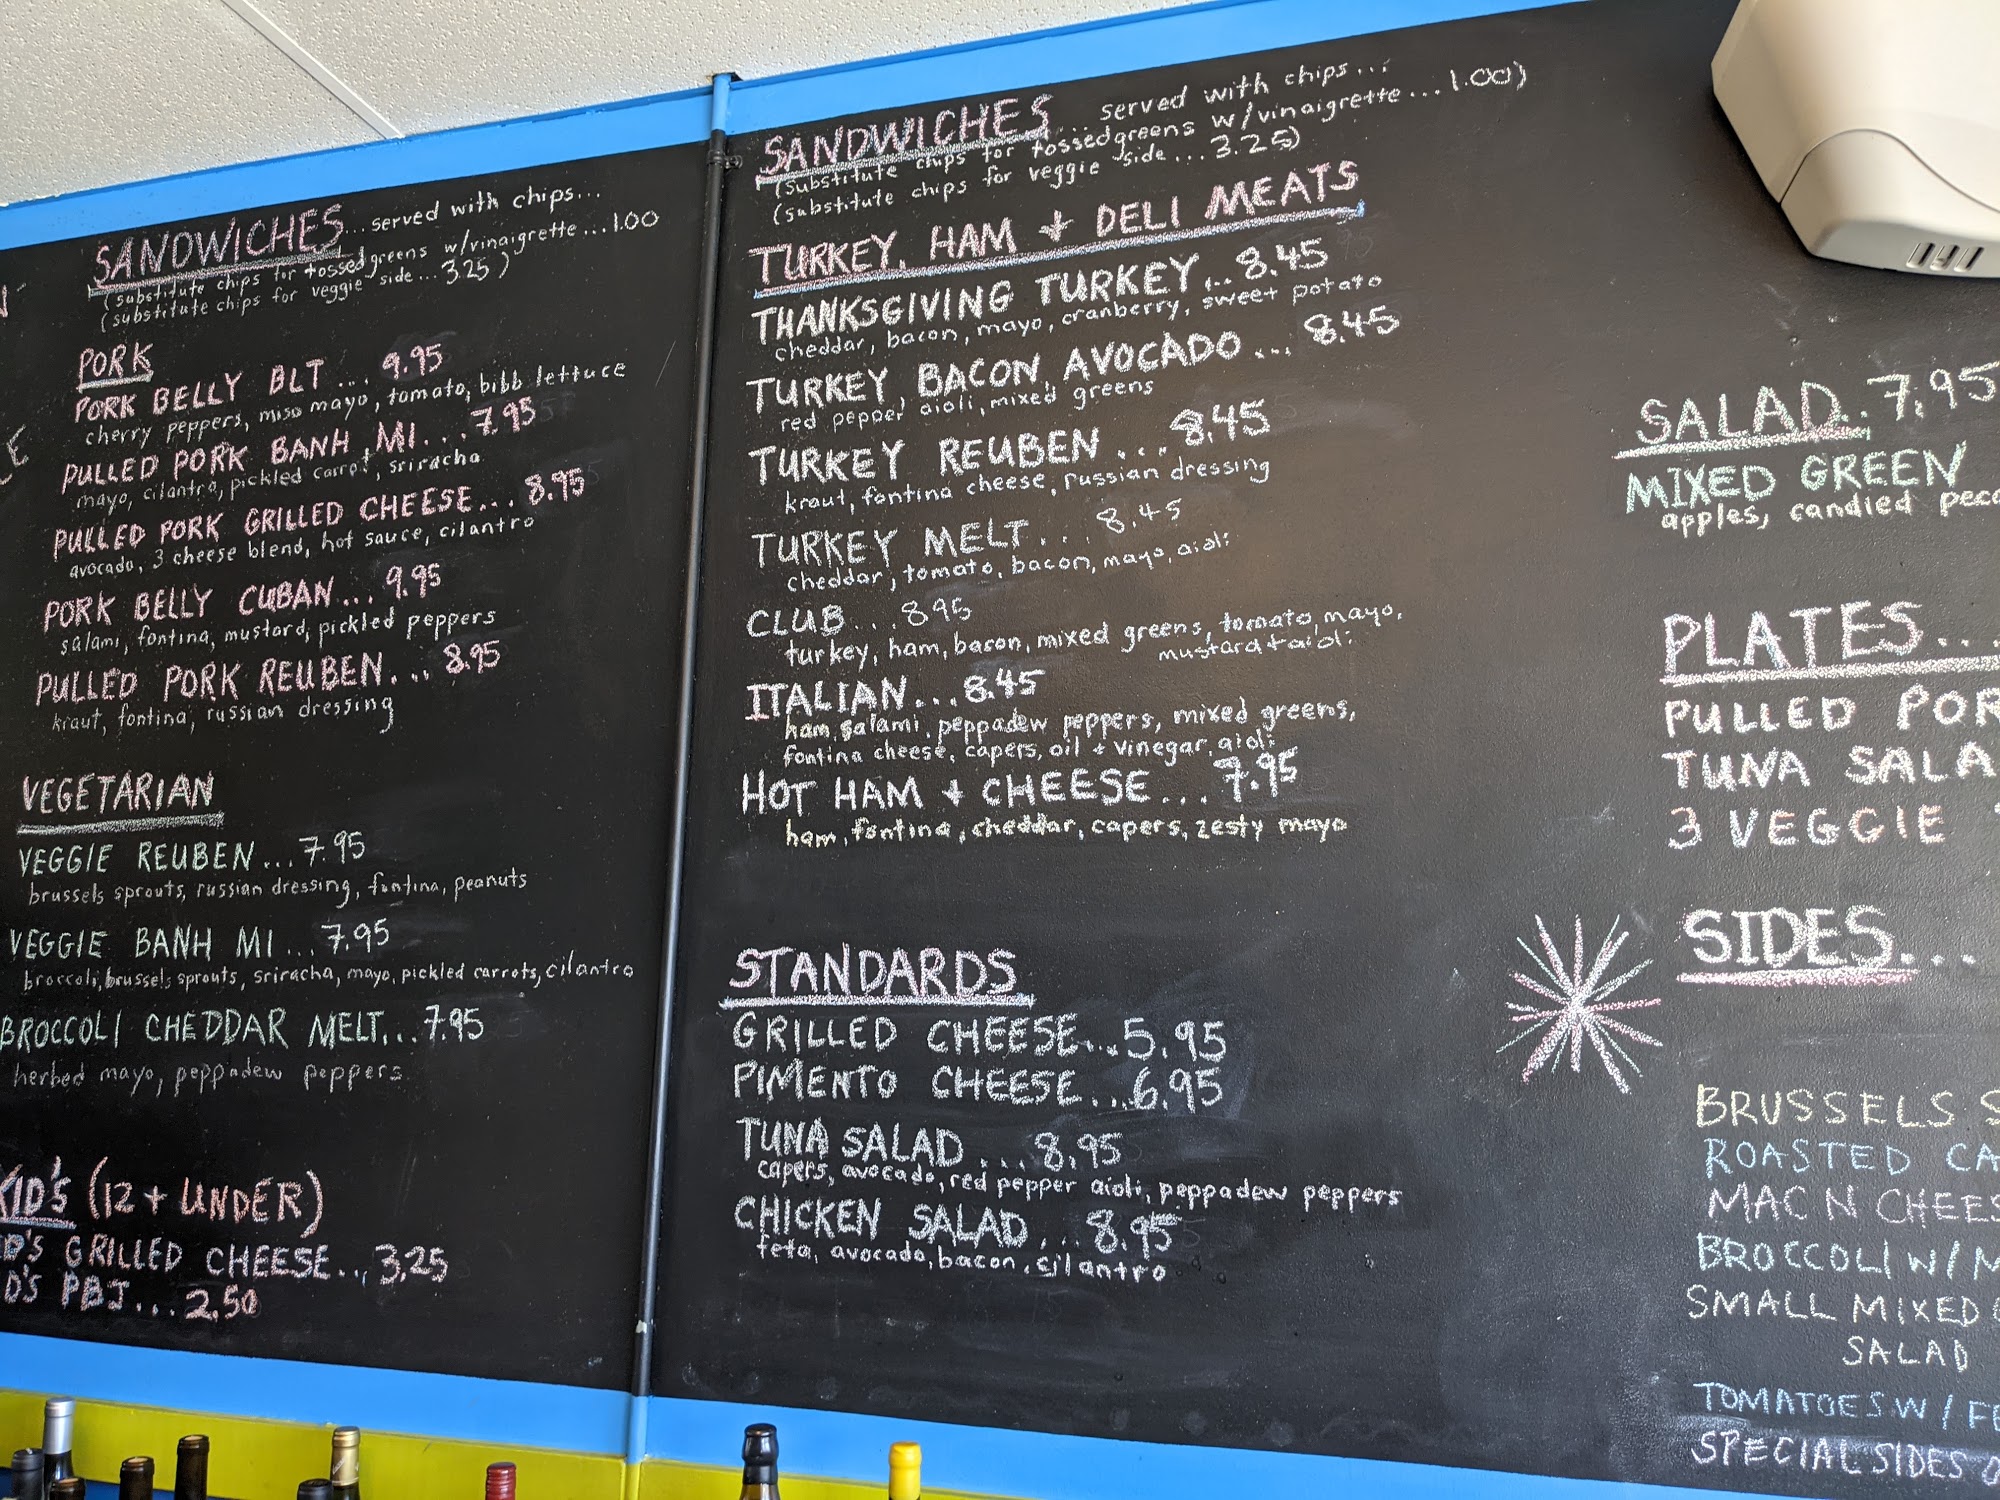 SANDWICHES...served with chips...
(substitute chips for tossed greens w/vinaigrette...1.00
(substitute chips for veggie side...3.25)
PORK
PORK BELLY BLT... 9.95
cherry peppers, miso mayo, tomato, bibb lettuce
PULLED PORK BANH MI...7.95
mayo, cilantro, pickled carrot, sriracha
PULLED PORK GRILLED CHEESE...8.95
avocado, 3 cheese blend, hot sauce, cilantro
PORK BELLY CUBAN...9.95
salami, fontina, mustard, pickled peppers
PULLED PORK REUBEN...8.95
kraut, fontina, russian dressing
VEGETARIAN
VEGGIE REUBEN...7.95
brussels sprouts, russian dressing, fontina, peanuts
VEGGIE BANH MI...7.95
broccoli, brussels sprouts, sriracha, mayo, pickled carrots, cilantro
BROCCOLI CHEDDAR MELT...7.95
herbed mayo, peppadew peppers
KID'S (12 + UNDER)
D'S GRILLED CHEESE...3.25
D'S PBJ...2.50
SANDWICHES served with chips...
(substitute chips for tossed greens w/vinaigrette...1.00)
(substitute chips for veggie side...3.25)
TURKEY, HAM + DELI MEATS
THANKSGIVING TURKEY...8.45
cheddar, bacon, mayo, cranberry, sweet potato
TURKEY, BACON, AVOCADO... 8.45
red pepper aioli, mixed greens
TURKEY REUBEN...8.45
kraut, fontina cheese, russian dressing
TURKEY MELT...8.45
cheddar, tomato, bacon, mayo, aioli
CLUB...8.95
turkey, ham, bacon, mixed greens, tomato, mayo,
mustard + aioli
ITALIAN...8.45
ham, salami, peppadew peppers, mixed greens,
fontina cheese, capers, oil + vinegar, aioli
HOT HAM + CHEESE...7.95
ham, fontina, cheddar, capers, zesty mayo
STANDARDS
GRILLED CHEESE...5.95
PIMENTO CHEESE...6.95
TUNA SALAD...8.95
capers, avocado, red pepper aioli, peppadew peppers
CHICKEN SALAD...8.95
feta, avocado, bacon, cilantro
SALAD..7.95
MIXED GREEN
apples, candied
PLATES...
PULLED
TUNA
3 VEGGIE
SIDES...
BRUSSELS
ROASTED
MAC N
BROCCOLI W/
SMALL MIXED
SALAD
TOMATOES W/
SPECIAL SIDES